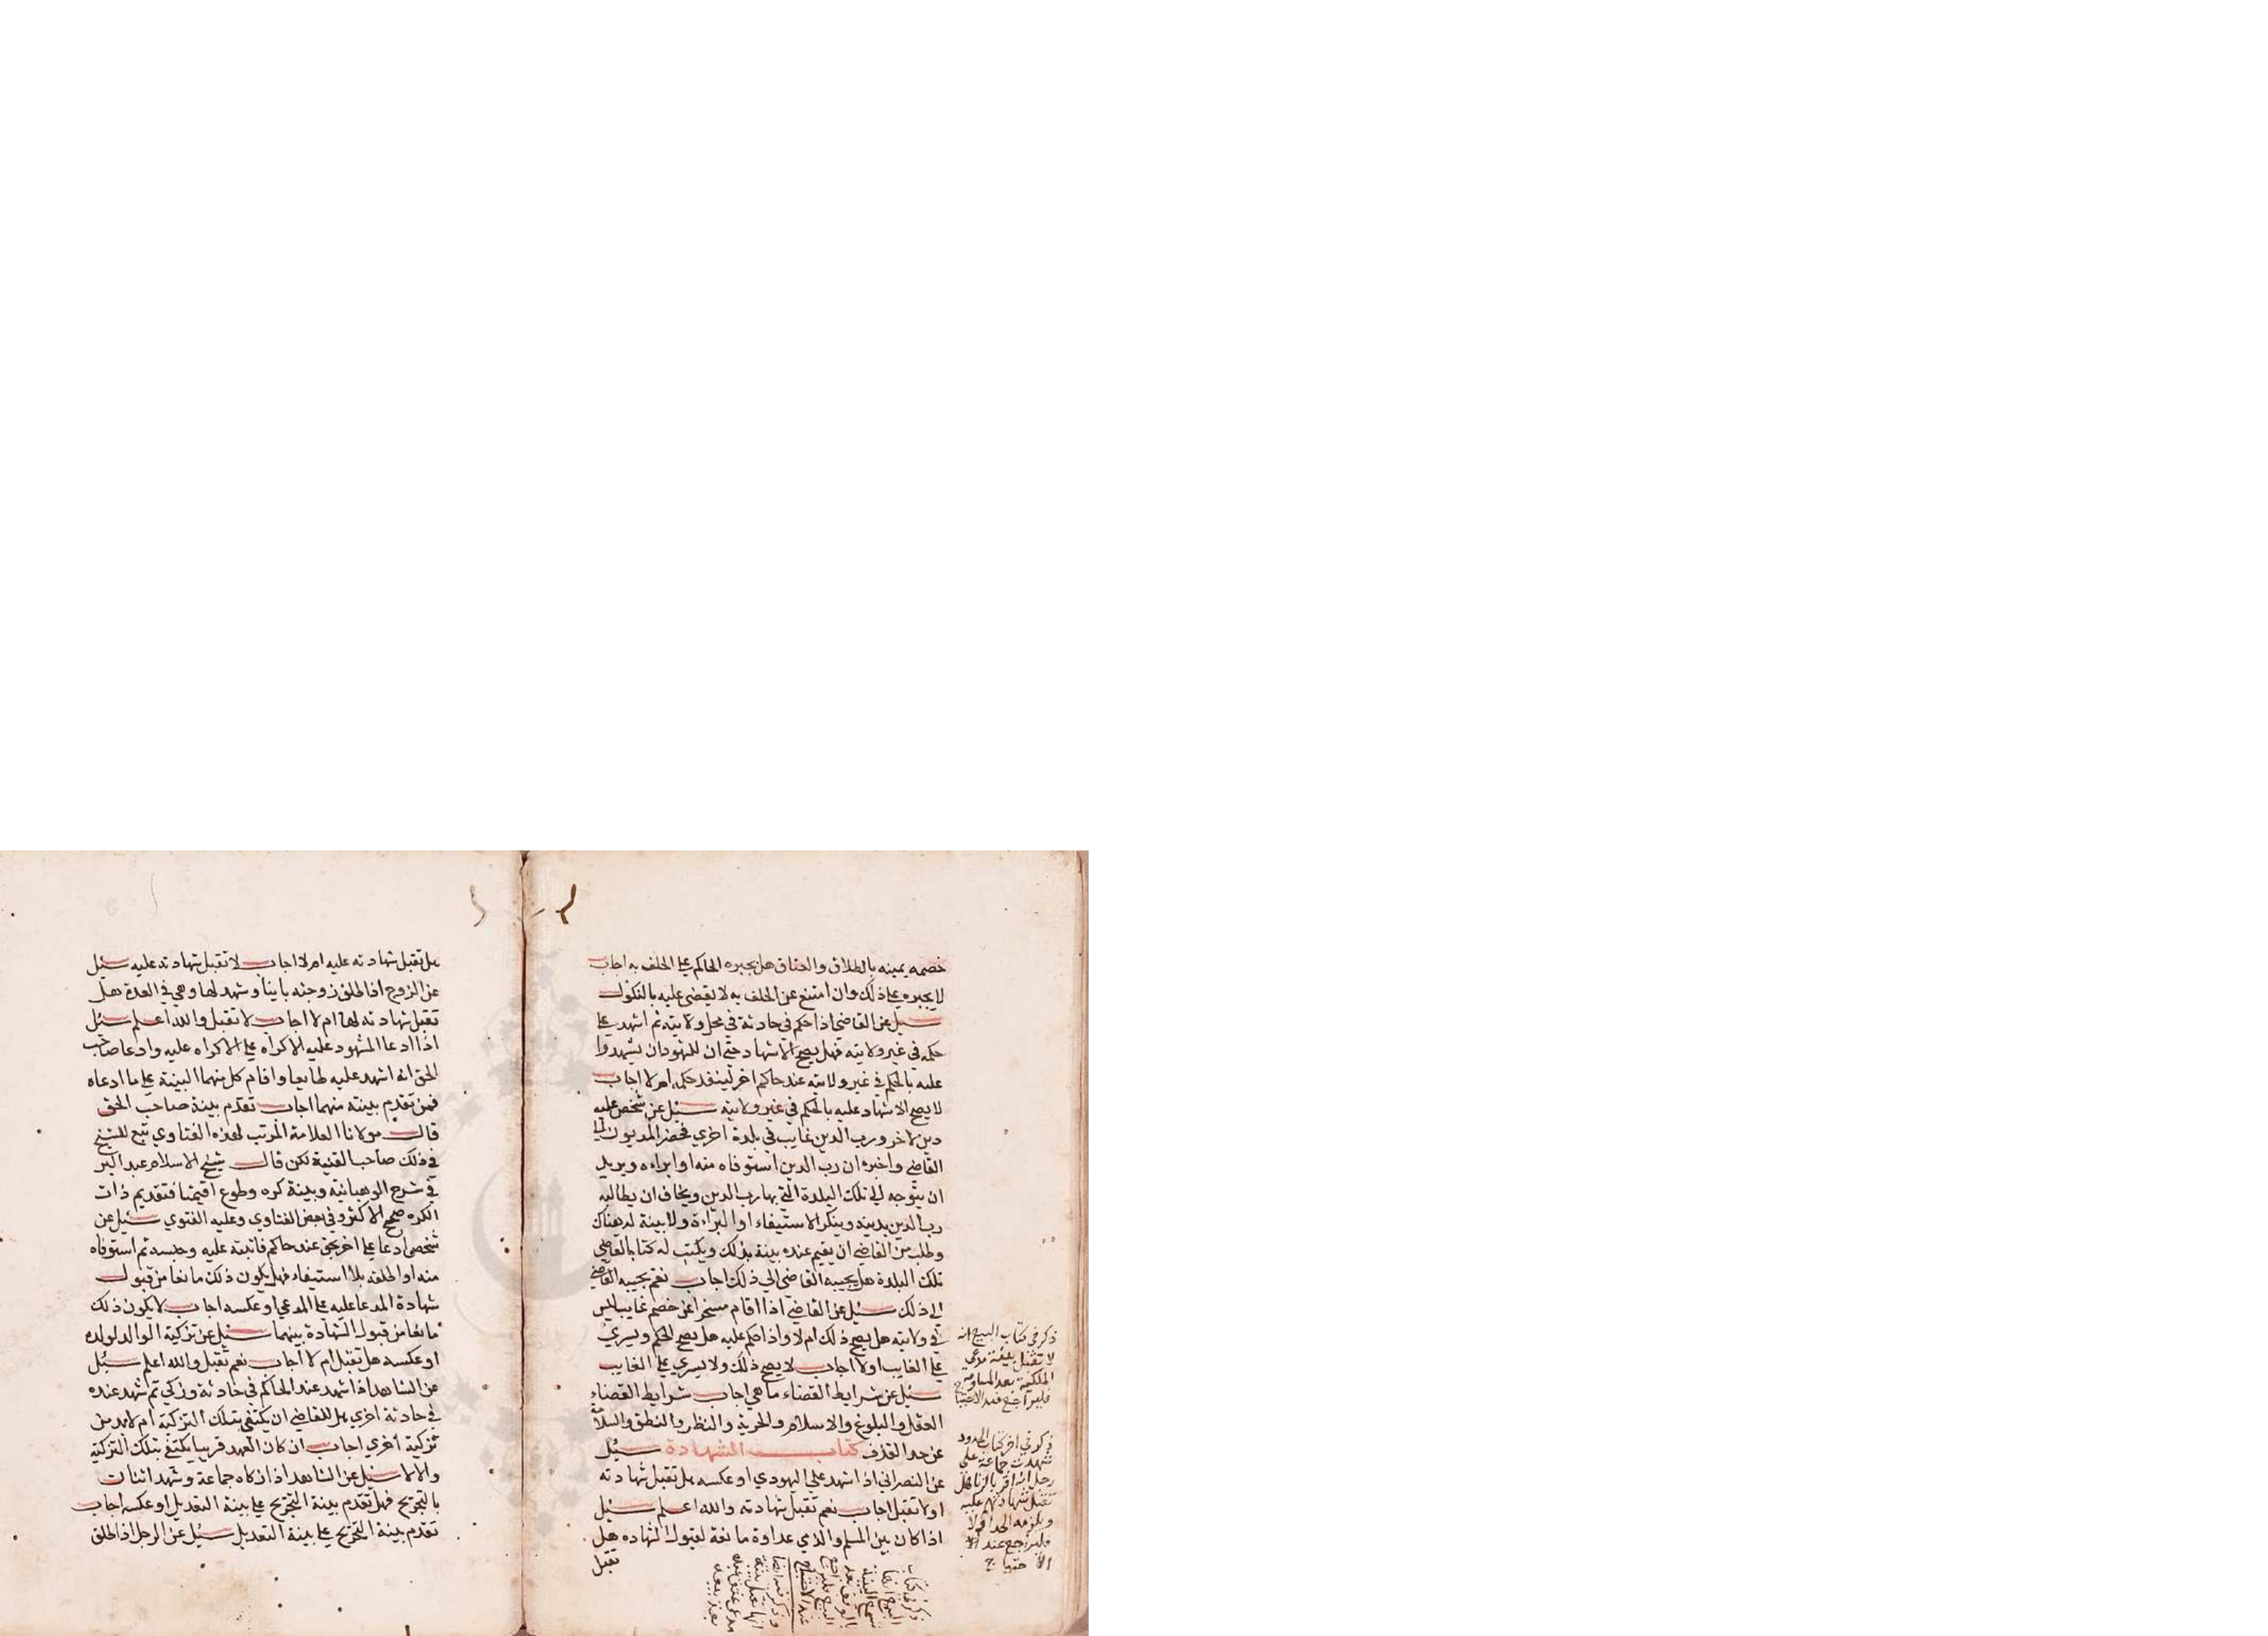 خصمه يمينه بالطلاق والعتاق هل يجبره الحاكم على الحلف به اجاب
لا يجبره على ذلك وان امتنع عن الحلف به لا يقضى عليه بالنكول
سئل عن القاضي اذا حكم في حادثة في محل ولايته ثم اشهد على
حكمه في غير ولايته فهل يصح الاشهاد حتى ان للشهود ان يشهدوا
عليه بالحكم في غير ولايته عند حاكم اخر لينفذ حكمه ام لا اجاب
لا يصح الاشهاد عليه بالحكم في غير ولايته سئل عن شخص عليه
دين لاخر ورب الدين غايب في بلدة اخري فحضر المديون الى
القاضي واخبره ان رب الدين استوفاه منه او ابراءه ويريد
ان يتوجه الى تلك البلدة التي بها رب الدين ويخاف ان يطالبه
رب الدين بدينه وينكر الاستيفاء او البراءة ولا بينة له هناك
وطلب من القاضي ان يقيم عنده بينة بذلك ويكتب له كتابا لقاضي
تلك البلدة هل يجيبه القاضي الى ذلك اجاب نعم يجيبه القاضي
الى ذلك سئل عن القاضي اذا اقام مسخرا عن خصم غايب ليس
في ولايته هل يصح ذلك ام لا واذا حكم عليه هل يصح الحكم ويسري
على الغايب او لا اجاب لا يصح ذلك ولا يسري على الغايب
سئل عن شرايط القضاء ما هي اجاب شرايط القضاء
العقل والبلوغ والاسلام والحرية والنظر والنطق والسلامة
عن حد القذف كتاب الشهادة سئل
عن النصراني اذا شهد على اليهودي او عكسه هل تقبل شهادته
او لا تقبل اجاب نعم تقبل شهادته والله اعلم سئل
اذا كان بين المسلم والذمي عداوة مانعة لقبول الشهاده هل
تقبل
ذكر في كتاب البيع انه
لا تقبل بينة مدعي
الملكية بعد المساومة
فليراجع عند الاحتياج
ذكر في اخر كتاب الحدود
شهدت جماعة على
رجل انه اقر بالزنا هل
تقبل شهادتهم عليه
ويلزمه الحد او لا
فليراجع عند
الاحتياج
ذكر في كتاب
البيوع ايضا
البينة
بالوقف بعد
البيع فليراجع
عند الاحتياج
وذكر فيه ايضا
انها تقبل بينة
مدعي عتق عبده
بعد بيعه
هل تقبل شهادته عليه ام لا اجاب لا تقبل شهادته عليه سئل
عن الزوج اذا طلق زوجته باينا وشهد لها وهي في العدة هل
تقبل شهادته لها ام لا اجاب لا تقبل والله اعلم سئل
اذا ادعا المشهود عليه الاكراه على الاكراه عليه وادعا صاحب
الحق انه اشهد عليه طايعا واقام كل منهما البينة على ما ادعاه
فمن تقدم بينته منهما اجاب تقدم بينة صاحب الحق
قال مولانا العلامة المرتب لهذه الفتاوي تبع الشيخ
في ذلك صاحب القنية لكن قال شيخ الاسلام عبد البر
في شرح الوهبانية وبينة كره وطوع اقيمتا فتقديم ذات
الكره صحح الاكثر وفي بعض الفتاوي وعليه الفتوي سئل عن
شخص ادعا على اخر بحق عند حاكم فاثبته عليه وحبسه ثم استوفاه
منه او اطلقه بلا استيفاء فهل يكون ذلك مانعا من قبول
شهادة المدعا عليه على المدعي او عكسه اجاب لا يكون ذلك
مانعا من قبول الشهادة بينهما سئل عن تزكية الوالد لولده
او عكسه هل تقبل ام لا اجاب نعم تقبل والله اعلم سئل
عن الشاهد اذا شهد عند الحاكم في حادثة وزكي ثم شهد عنده
في حادثة اخري هل للقاضي ان يكتفي بتلك التزكية ام لا بد من
تزكية اخري اجاب ان كان العهد قريبا يكتفي بتلك التزكية
والا لا سئل عن الشاهد اذا زكاه جماعة وشهد اثنان
بالتجريح فهل تقدم بينة التجريح على بينة التعديل او عكسه اجاب
تقدم بينة التجريح على بينة التعديل سئل عن الرجل اذا طلق